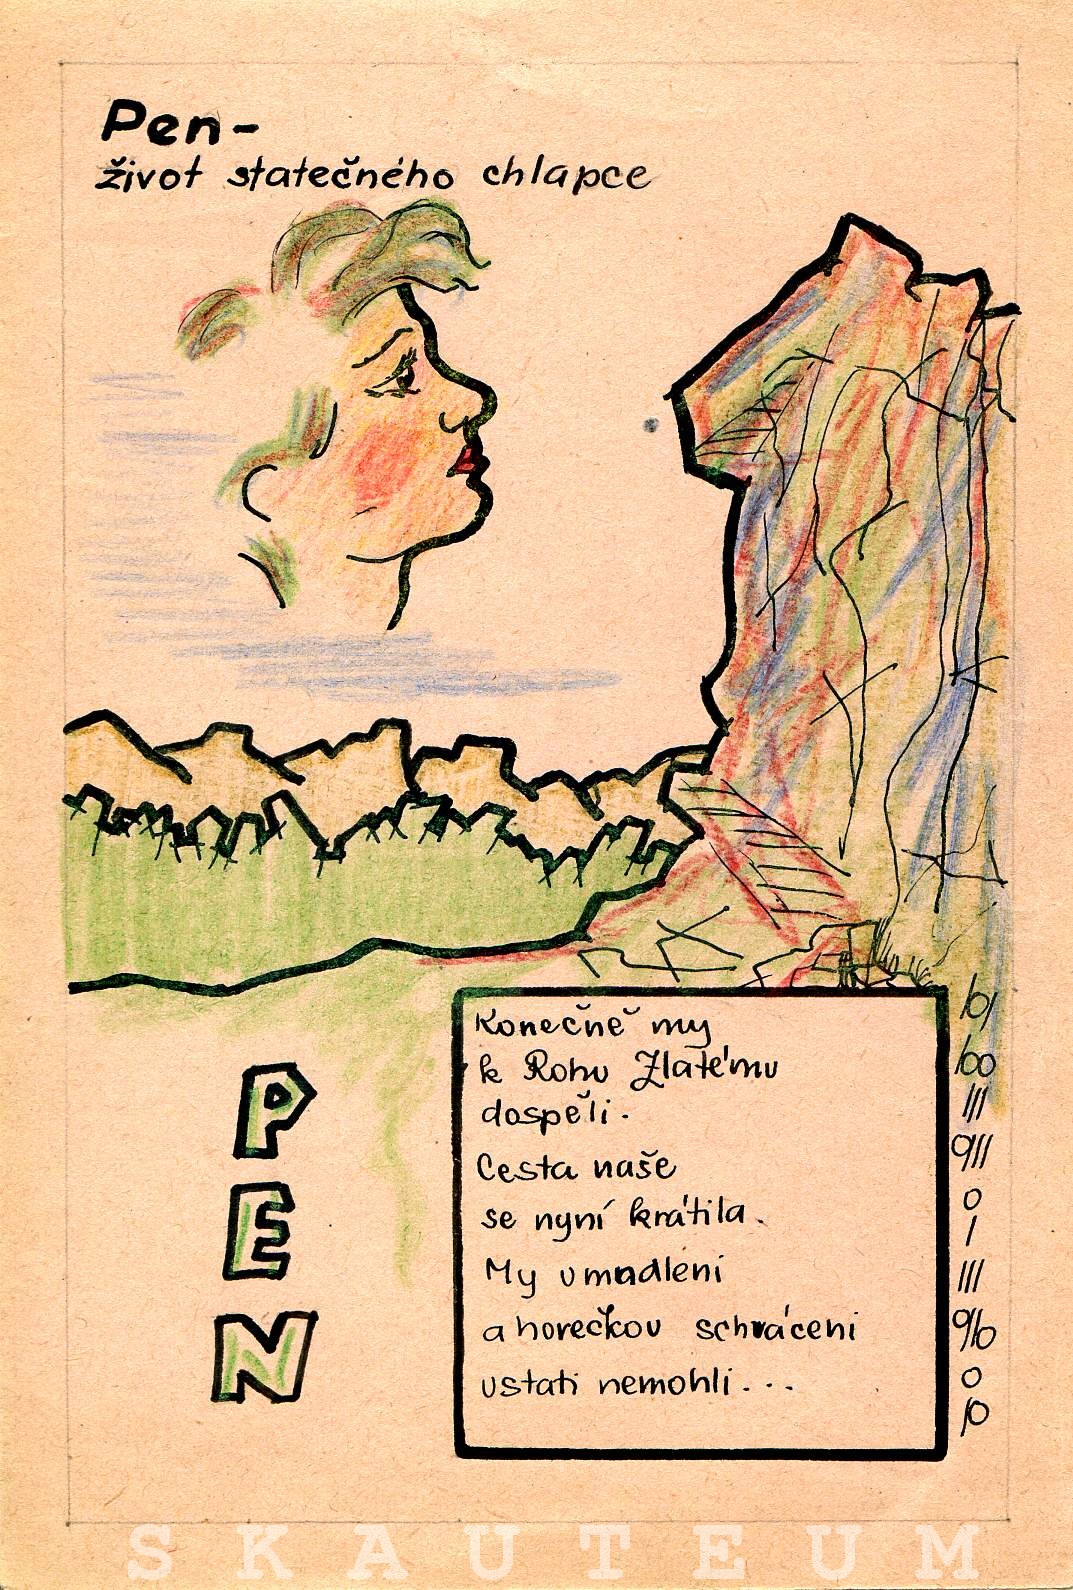 Pen-
život statečného chlapce
Konečně my
k Rohu Zlatému
dospěli.
Cesta naše
se nyní krátila.
My umdleni
a horečkou schváceni
ustati nemohli...
101
100
111
9111
0
1
111
910
0
10
PEN
SKAUTEUM